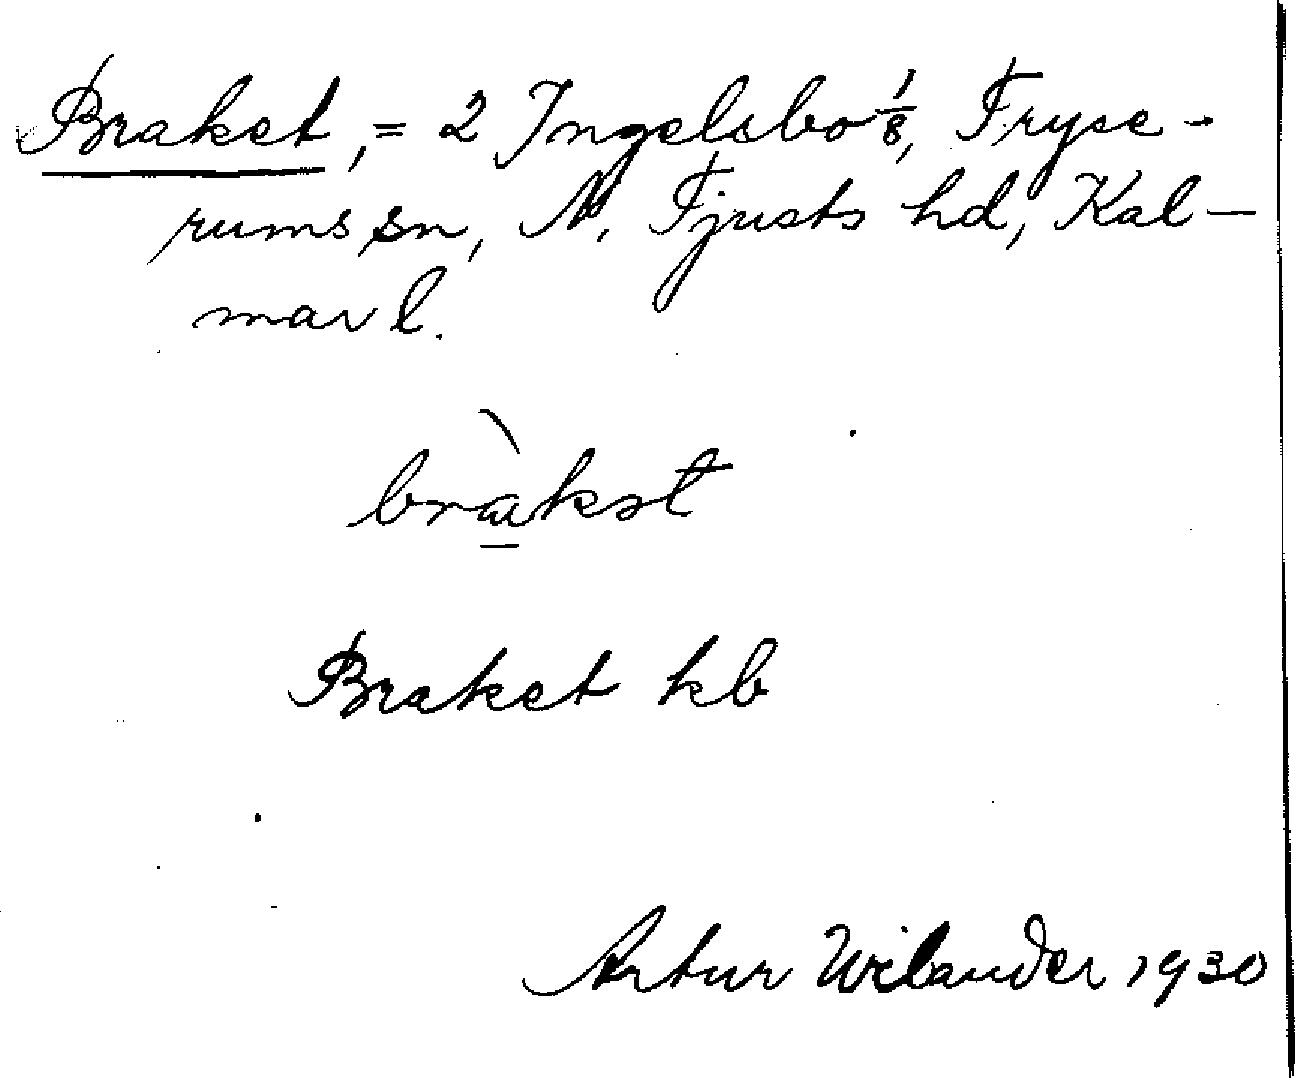 Braket, = 2 Ingelsbo 1/8, Tryse-
rums sn, N. Tjusts hd, Kal-
mar l.
bràkət
Braket kb
Artur Wilander 1930